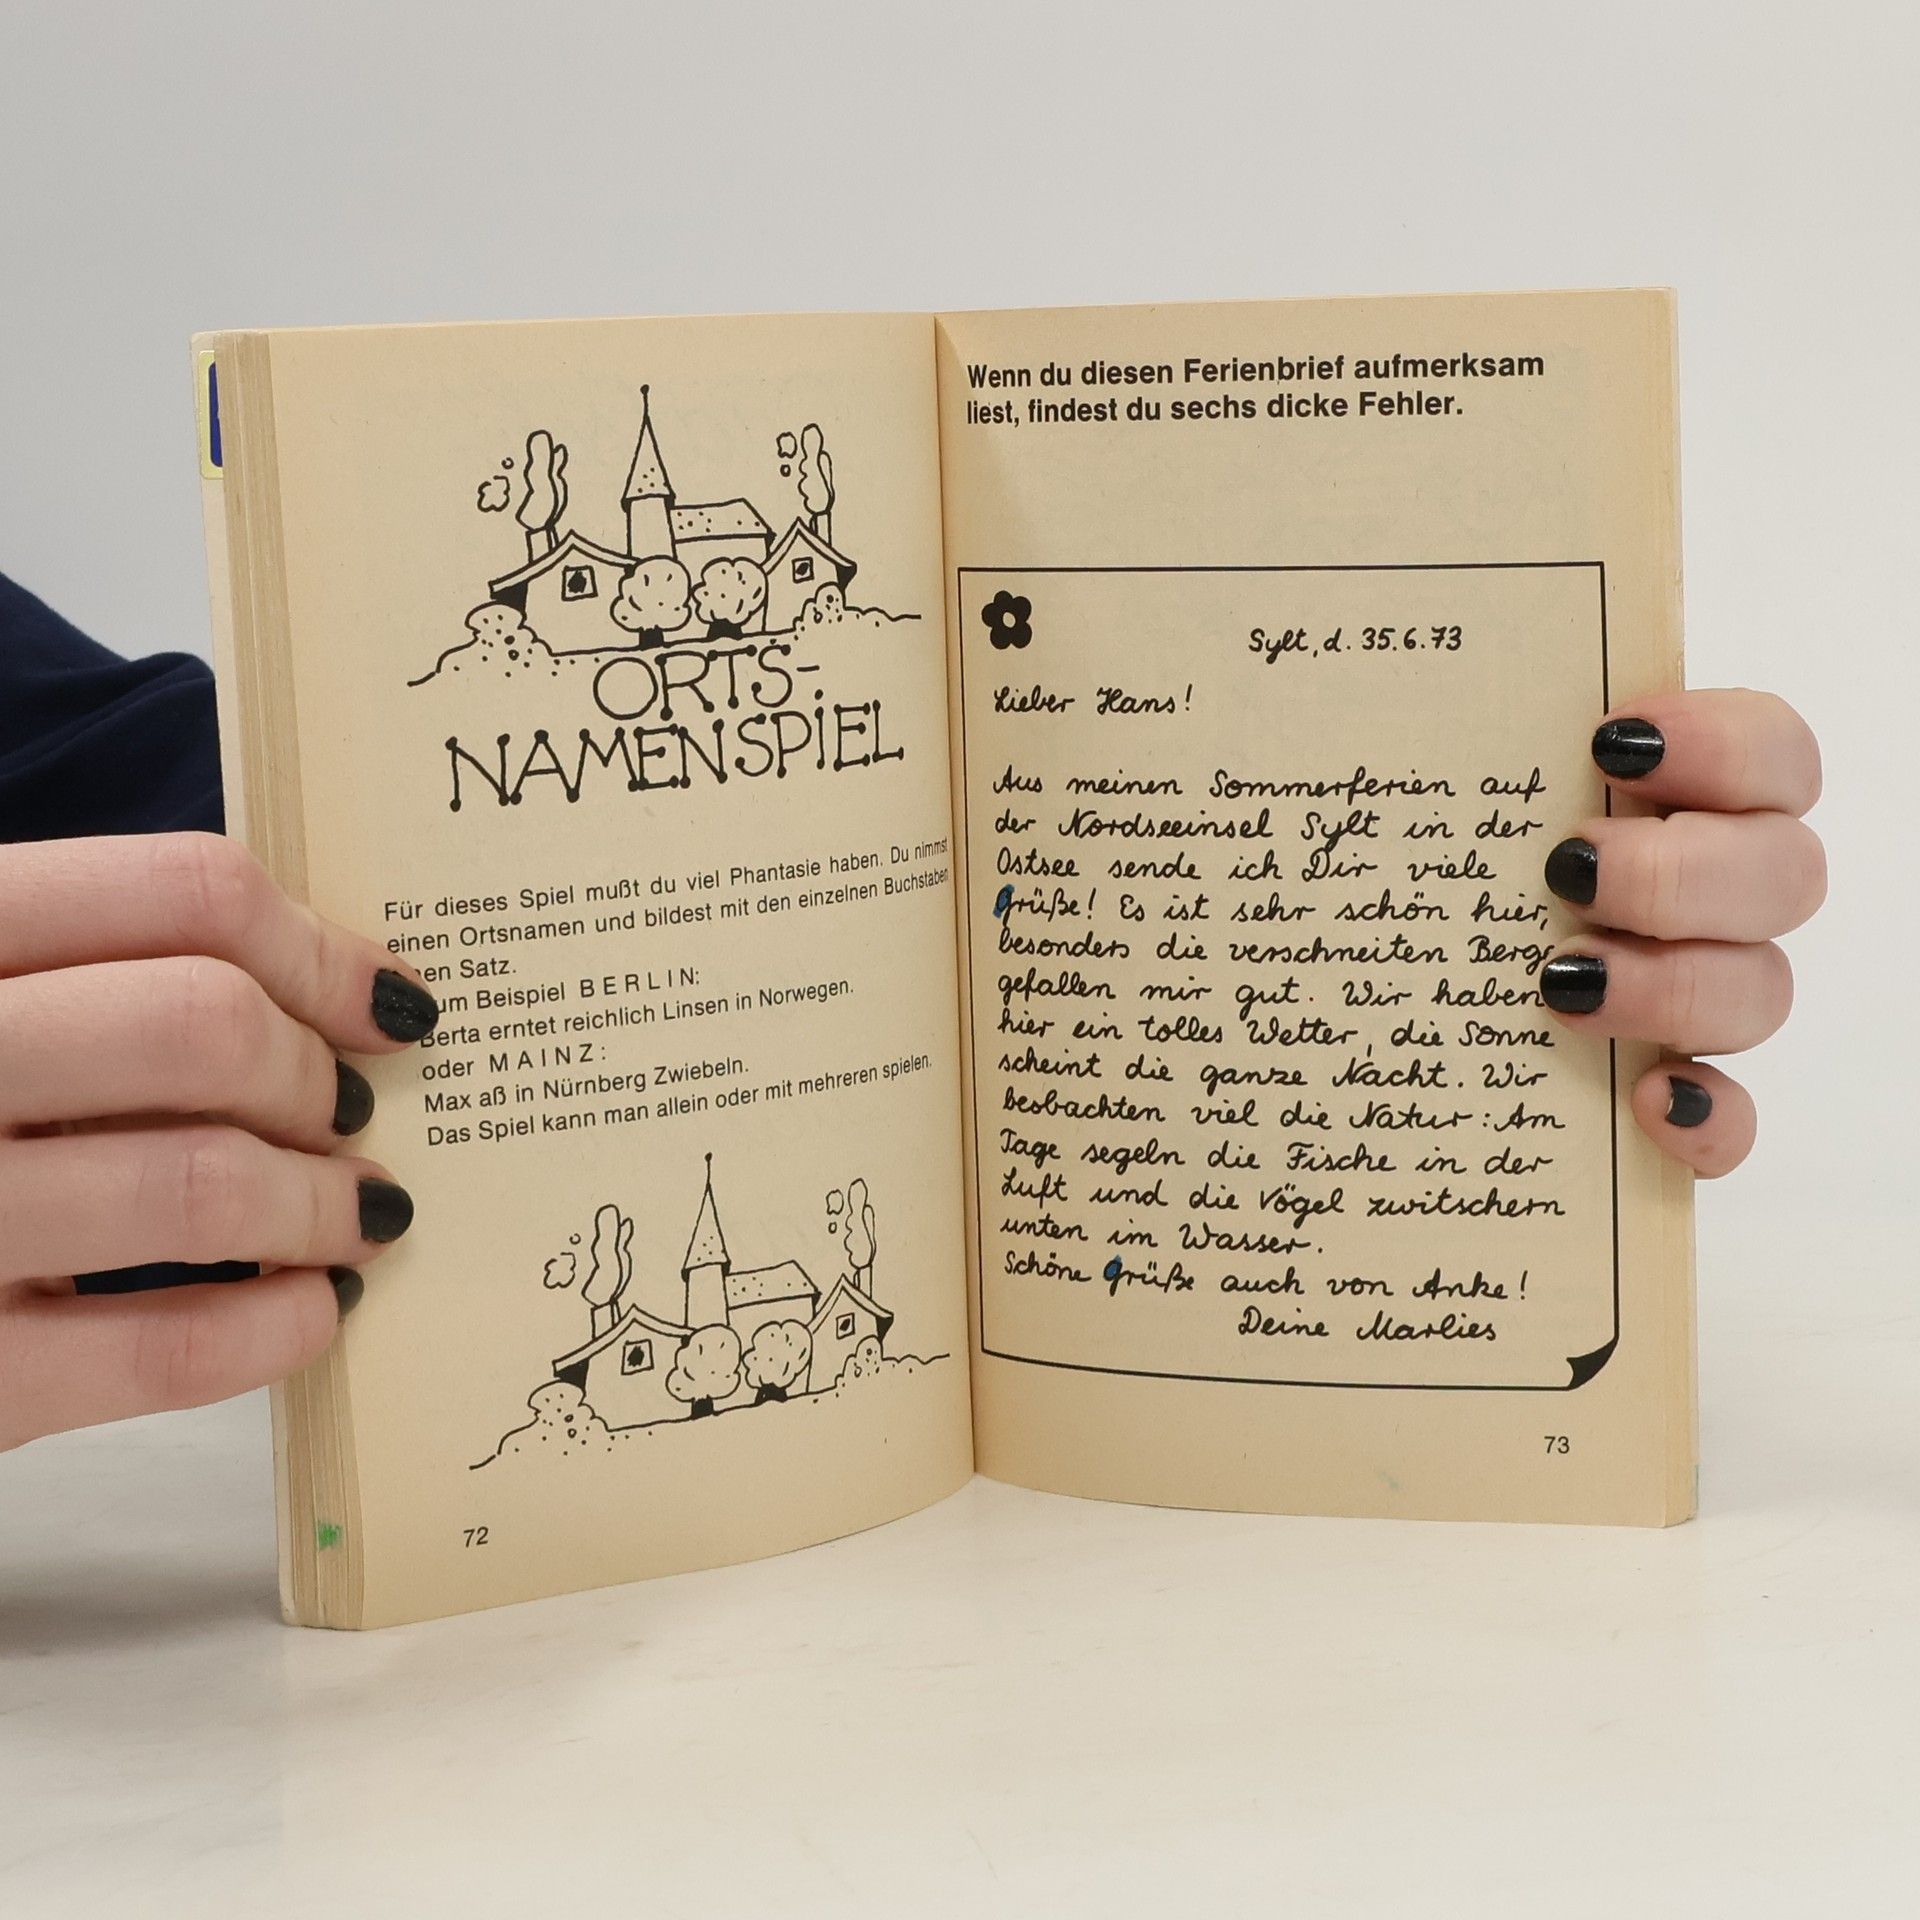 ORTS-
NAMENSPIEL
Für dieses Spiel mußt du viel Phantasie haben. Du nimmst
einen Ortsnamen und bildest mit den einzelnen Buchstaben
Satz.
Beispiel BERLIN:
Berta erntet reichlich Linsen in Norwegen.
oder MAINZ:
Max aß in Nürnberg Zwiebeln.
Das Spiel kann man allein oder mit mehreren spielen.
72
Wenn du diesen Ferienbrief aufmerksam
liest, findest du sechs dicke Fehler.
Sylt, d. 35.6.73
Lieber Hans!
Aus meinen Sommerferien auf
der Nordseeinsel Sylt in der
Ostsee sende ich Dir viele
Grüße! Es ist sehr schön hier,
besonders die verschneiten Berge
gefallen mir gut. Wir haben
hier ein tolles Wetter, die Sonne
scheint die ganze Nacht. Wir
beobachten viel die Natur: Am
Tage segeln die Fische in der
Luft und die Vögel zwitschern
unten im Wasser.
Schöne Grüße auch von Anke!
Deine Marlies
73